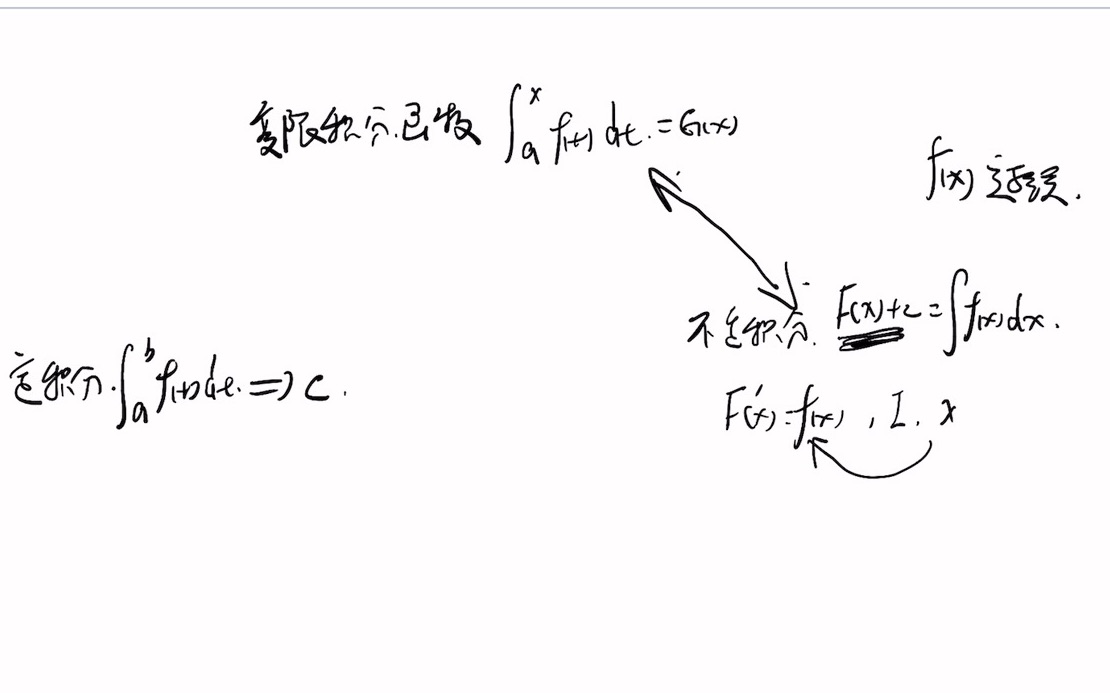 变限积分函数 ∫ₐˣ f(t) dt = G(x)
f(x) 连续.
不定积分. F(x)+C = ∫f(x)dx.
定积分. ∫ₐᵇ f(t)dt. ⇒ C.
F'(x) = f(x), I. x